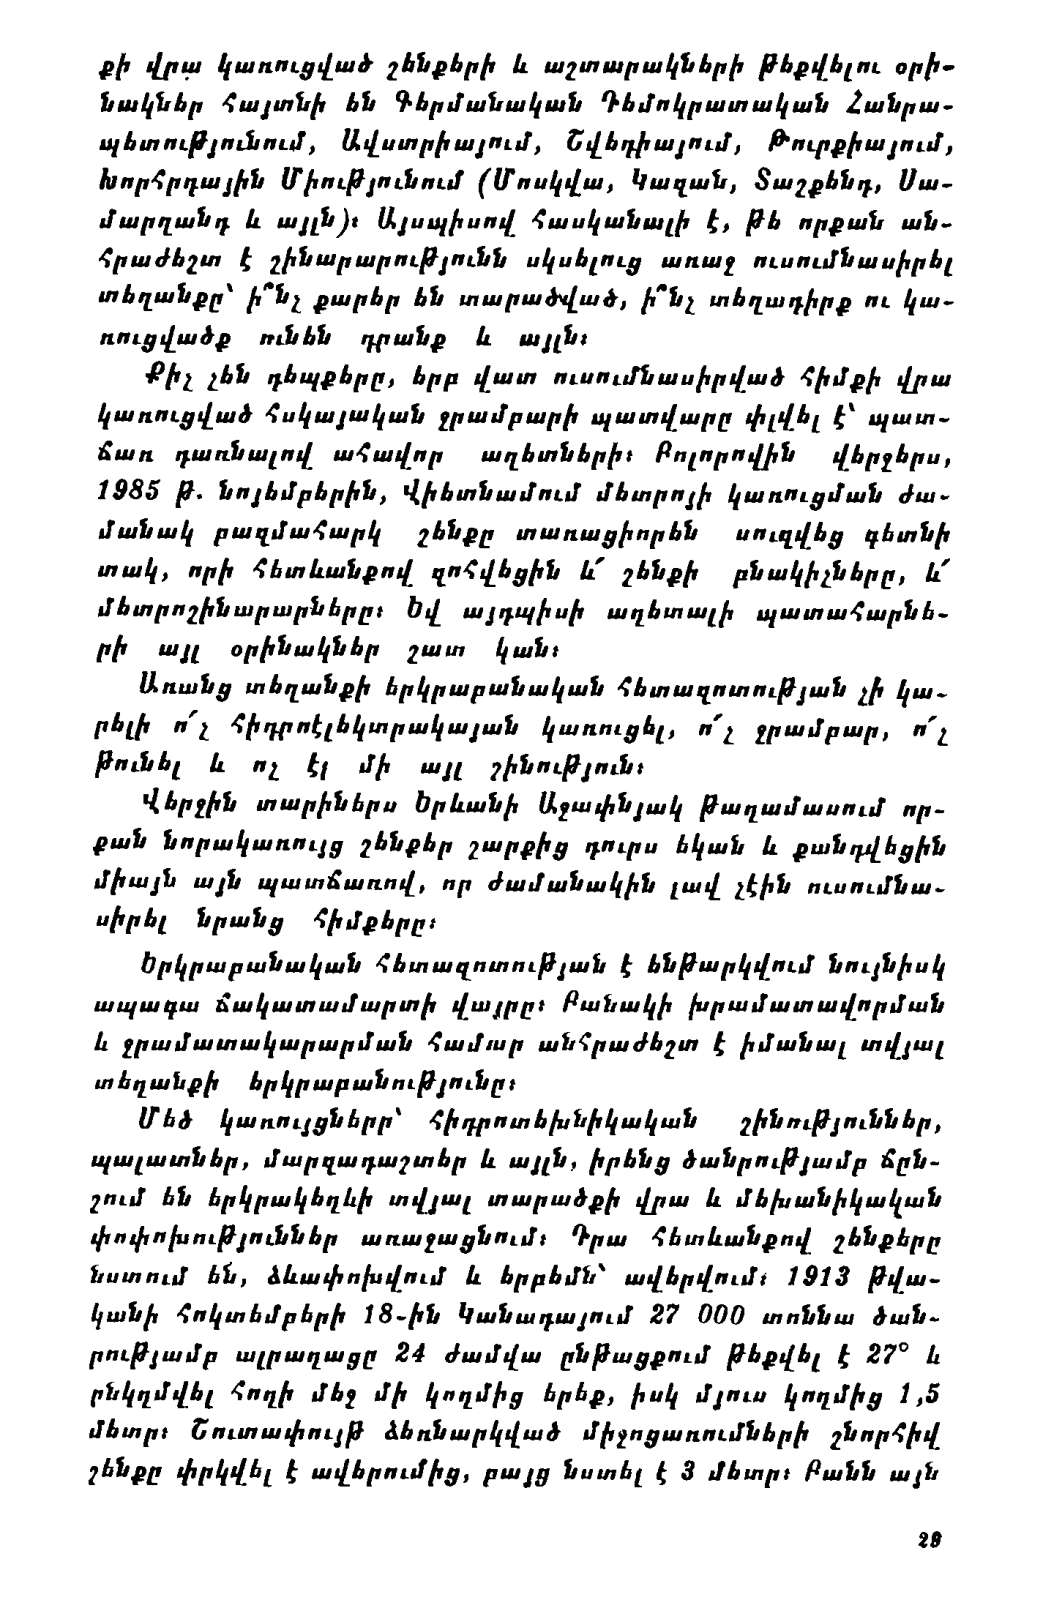 քի վրա կառուցված շենքերի և աշտարակների թեքվելու օրի-
նակներ հայտնի են Գերմանական Դեմոկրատական Հանրա-
պետությունում, Ավստրիայում, Շվեդիայում, Թուրքիայում,
Խորհրդային Միությունում (Մոսկվա, Կազան, Տաշքենդ, Սա-
մարղանդ և այլն)։ Այսպիսով հասկանալի է, թե որքան ան-
հրաժեշտ է շինարարությունն սկսելուց առաջ ուսումնասիրել
տեղանքը՝ ի՞նչ քարեր են տարածված, ի՞նչ տեղադիրք ու կա-
ռուցվածք ունեն դրանք և այլն։
Քիչ չեն դեպքերը, երբ վատ ուսումնասիրված հիմքի վրա
կառուցված հսկայական ջրամբարի պատվարը փլվել է՝ պատ-
ճառ դառնալով ահավոր աղետների։ Բոլորովին վերջերս,
1985 թ. նոյեմբերին, Վիետնամում մետրոյի կառուցման ժա-
մանակ բազմահարկ շենքը տառացիորեն սուզվեց գետնի
տակ, որի հետևանքով զոհվեցին և՛ շենքի բնակիչները, և՛
մետրոշինարարները։ Եվ այդպիսի աղետալի պատահարնե-
րի այլ օրինակներ շատ կան։
Առանց տեղանքի երկրաբանական հետազոտության չի կա-
րելի ո՛չ հիդրոէլեկտրակայան կառուցել, ո՛չ ջրամբար, ո՛չ
թունել և ոչ էլ մի այլ շինություն։
Վերջին տարիներս Երևանի Աջափնյակ թաղամասում որ-
քան նորակառույց շենքեր շարքից դուրս եկան և քանդվեցին
միայն այն պատճառով, որ ժամանակին լավ չէին ուսումնա-
սիրել նրանց հիմքերը։
Երկրաբանական հետազոտության է ենթարկվում նույնիսկ
ապագա ճակատամարտի վայրը։ Բանակի խրամատավորման
և ջրամատակարարման համար անհրաժեշտ է իմանալ տվյալ
տեղանքի երկրաբանությունը։
Մեծ կառույցները՝ հիդրոտեխնիկական շինություններ,
պալատներ, մարզադաշտեր և այլն, իրենց ծանրությամբ ճըն-
շում են երկրակեղևի տվյալ տարածքի վրա և մեխանիկական
փոփոխություններ առաջացնում։ Դրա հետևանքով շենքերը
նստում են, ձևափոխվում և երբեմն՝ ավերվում։ 1913 թվա-
կանի հոկտեմբերի 18-ին Կանադայում 27 000 տոննա ծան-
րությամբ ալրաղացը 24 ժամվա ընթացքում թեքվել է 27° և
ընկղմվել հողի մեջ մի կողմից երեք, իսկ մյուս կողմից 1,5
մետր։ Շուտափույթ ձեռնարկված միջոցառումների շնորհիվ
շենքը փրկվել է ավերումից, բայց նստել է 3 մետր։ Բանն այն
29